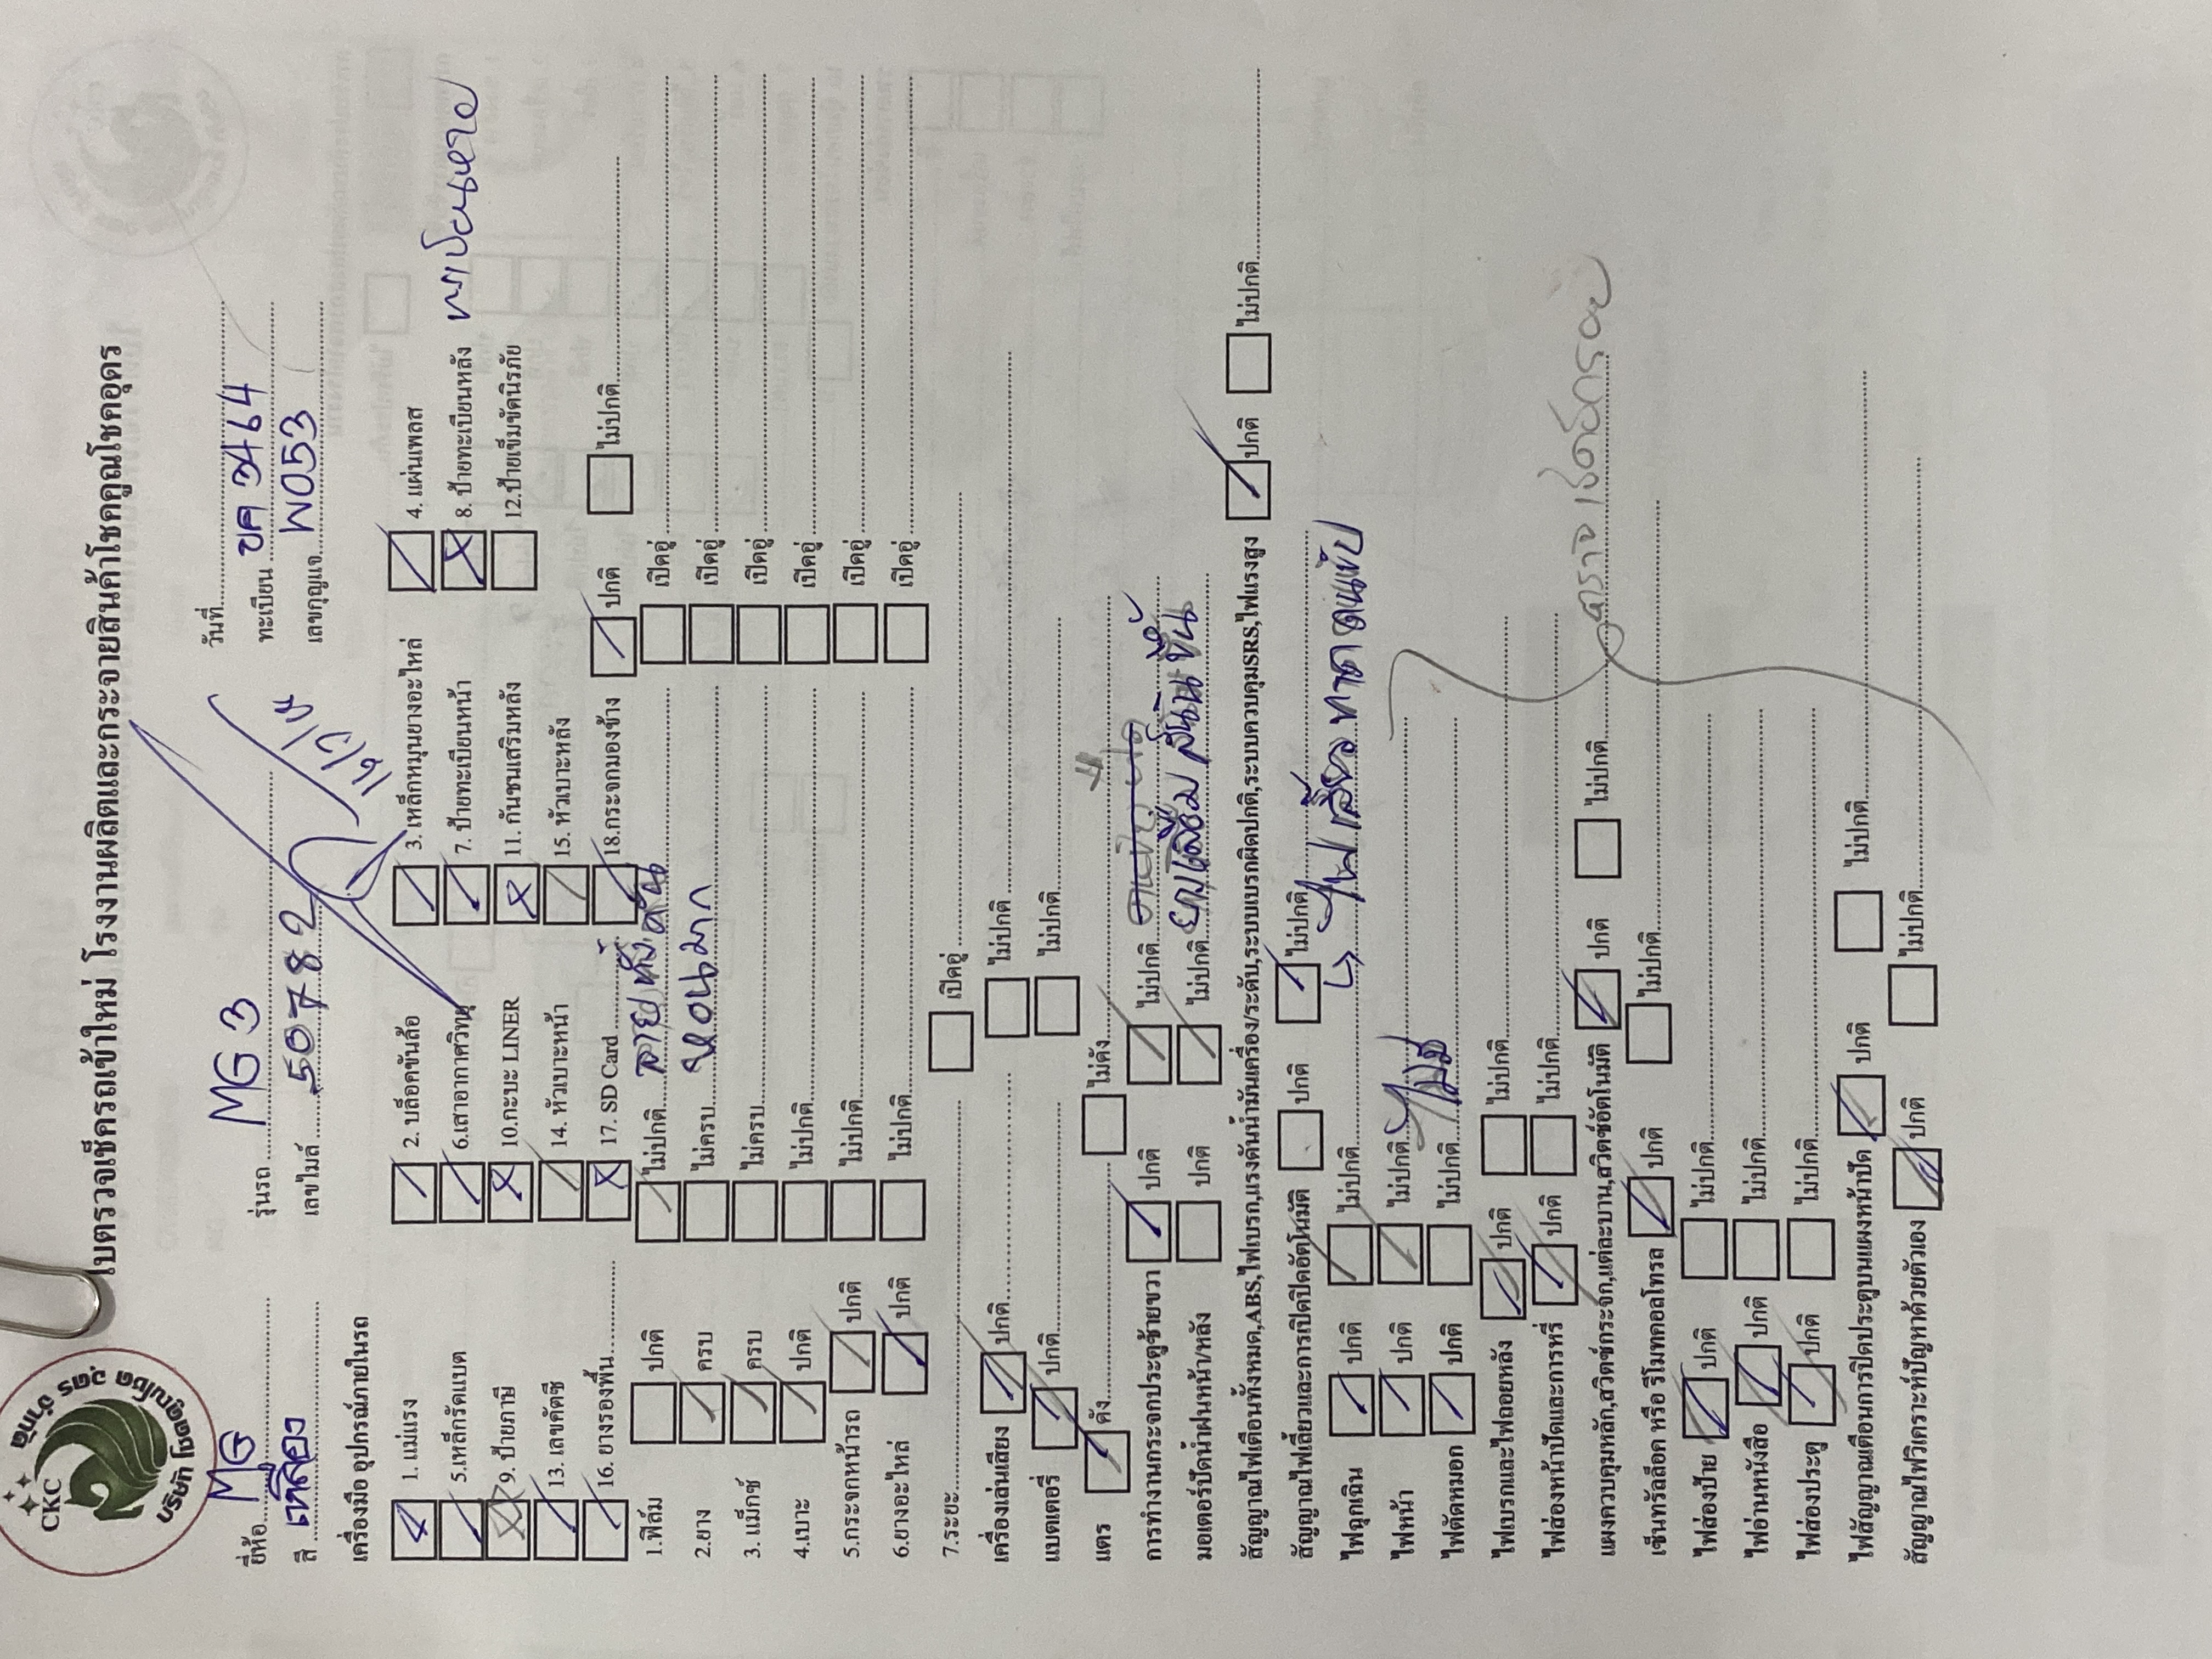 CKC
บริษัท โชคคูณโชค อุดร จำกัด
ใบตรวจเช็ครถเข้าใหม่ โรงงานผลิตและกระจายสินค้าโชคคูณโชคอุดร
วันที่
ยี่ห้อ MG รุ่นรถ MG 3 ทะเบียน ขค 3464
สี เหลือง เลขไมล์ 50782 เลขกุญแจ W053
เครื่องมือ อุปกรณ์ภายในรถ
1. แม่แรง 2. บล็อคขันล้อ 3. เหล็กหมุนยางอะไหล่ 4. แผ่นเพลส
5.เหล็กรัดแบต 6.เสาอากาศวิทยุ 7. ป้ายทะเบียนหน้า 8. ป้ายทะเบียนหลัง
9. ป้ายภาษี 10.กะบะ LINER 11. กันชนเสริมหลัง 12.ป้ายเข็มขัดนิรภัย
13. เลขคัตซี 14. หัวเบาะหน้า 15. หัวเบาะหลัง
16. ยางรองพื้น 17. SD Card 18.กระจกมองข้าง ปกติ ไม่ปกติ
1.ฟิล์ม ปกติ ไม่ปกติ เปิดอู่
2.ยาง ครบ ไม่ครบ เปิดอู่
3. แม็กซ์ ครบ ไม่ครบ เปิดอู่
4.เบาะ ปกติ ไม่ปกติ เปิดอู่
5.กระจกหน้ารถ ปกติ ไม่ปกติ เปิดอู่
6.ยางอะไหล่ ปกติ ไม่ปกติ เปิดอู่
7.ระยะ เปิดอู่
เครื่องเล่นเสียง ปกติ ไม่ปกติ
แบตเตอรี่ ปกติ ไม่ปกติ
แตร ดัง ไม่ดัง
การทำงานกระจกประตูซ้ายขวา ปกติ ไม่ปกติ
มอเตอร์ปัดน้ำฝนหน้า/หลัง ปกติ ไม่ปกติ
สัญญาณไฟเตือนทั้งหมด,ABS,ไฟเบรก,แรงดันน้ำมันเครื่อง/ระดับ,ระบบเบรกผิดปกติ,ระบบควบคุมSRS,ไฟแรงสูง ปกติ ไม่ปกติ
สัญญาณไฟเลี้ยวและการเปิดปิดอัตโนมัติ ปกติ ไม่ปกติ
ไฟฉุกเฉิน ปกติ ไม่ปกติ
ไฟหน้า ปกติ ไม่ปกติ
ไฟตัดหมอก ปกติ ไม่ปกติ ไม่มี
ไฟเบรกและไฟถอยหลัง ปกติ ไม่ปกติ
ไฟส่องหน้าปัดและการหรี่ ปกติ ไม่ปกติ
แผงควบคุมหลัก,สวิตซ์กระจก,แต่ละบาน,สวิตซ์อัตโนมัติ ปกติ ไม่ปกติ
เซ็นทรัลล็อค หรือ รีโมทคอลโทรล ปกติ ไม่ปกติ
ไฟส่องป้าย ปกติ ไม่ปกติ
ไฟอ่านหนังสือ ปกติ ไม่ปกติ
ไฟส่องประตู ปกติ ไม่ปกติ
ไฟสัญญาณเตือนการปิดประตูบนแผงหน้าปัด ปกติ ไม่ปกติ
สัญญาณไฟวิเคราะห์ปัญหาด้วยตัวเอง ปกติ ไม่ปกติ